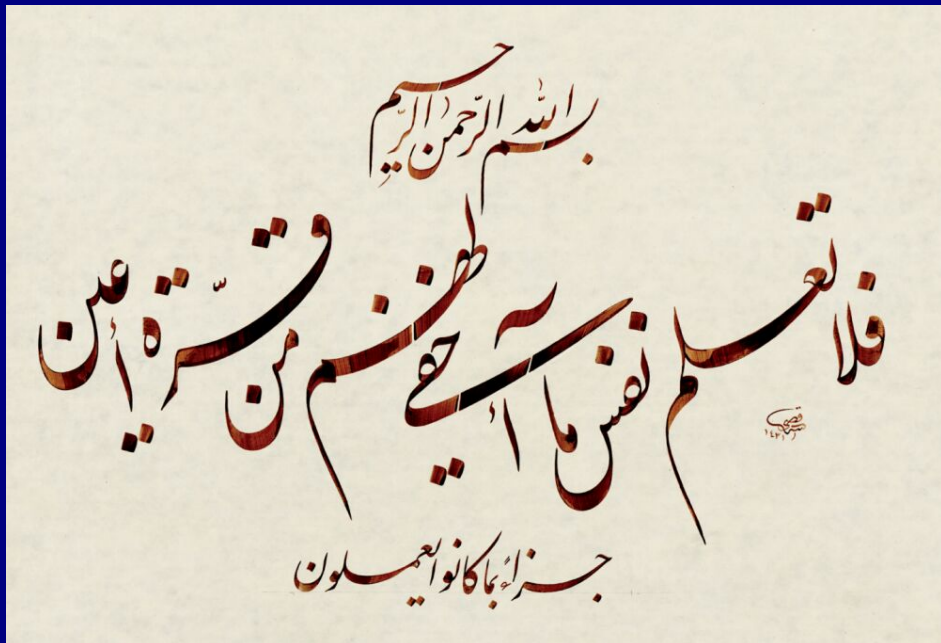 بسم الله الرّحمن الرّحيم
فلا تعلم نفس ما أخفي لهم من قرّة أعين
جزاء بما كانوا يعملون
١٤٢١